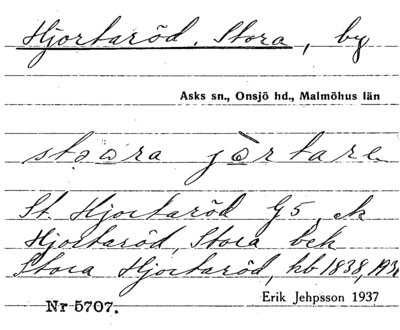 Hjortaröd, Stora, by
Asks sn., Onsjö hd., Malmöhus län
stora jòrtare
St. Hjortaröd G5, ek
Hjortaröd, Stora bek
Stora Hjortaröd, hb 1838,
Erik Jehpsson 1937
Nr 5707.